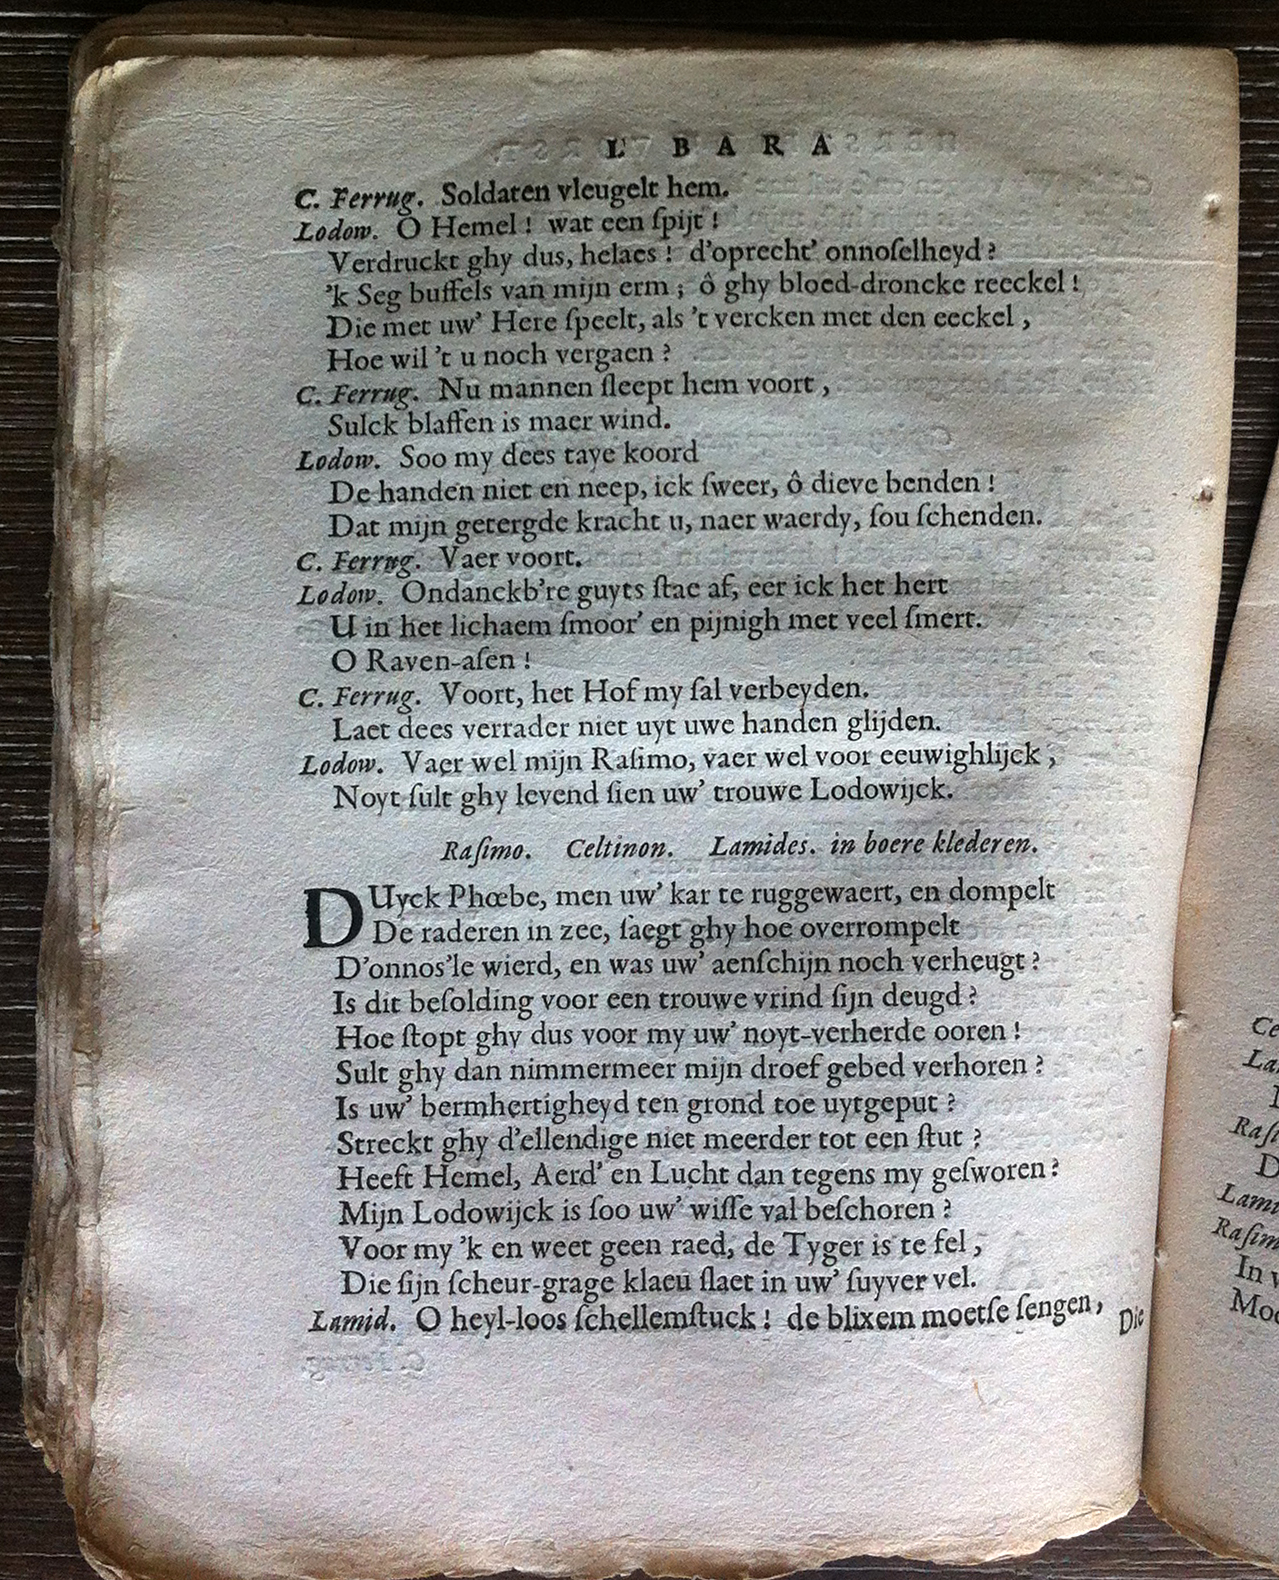 L' B A R A
C. Ferrug. Soldaten vleugelt hem.
Lodow. O Hemel! wat een ſpijt!
Verdruckt ghy dus, helaes! d'oprecht' onnoſelheyd?
'k Seg buffels van mijn erm; ô ghy bloed-droncke reeckel!
Die met uw' Here ſpeelt, als 't vercken met den eeckel,
Hoe wil 't u noch vergaen?
C. Ferrug. Nu mannen ſleept hem voort,
Sulck blaffen is maer wind.
Lodow. Soo my dees taye koord
De handen niet en neep, ick ſweer, ô dieve benden!
Dat mijn getergde kracht u, naer waerdy, ſou ſchenden.
C. Ferrug. Vaer voort.
Lodow. Ondanckb're guyts ſtae af, eer ick het hert
U in het lichaem ſmoor' en pijnigh met veel ſmert.
O Raven-aſen!
C. Ferrug. Voort, het Hof my ſal verbeyden.
Laet dees verrader niet uyt uwe handen glijden.
Lodow. Vaer wel mijn Raſimo, vaer wel voor eeuwighlijck,
Noyt ſult ghy levend ſien uw' trouwe Lodowijck.
Raſimo. Celtinon. Lamides. in boere klederen.
DUyck Phœbe, men uw' kar te ruggewaert, en dompelt
De raderen in zee, ſaegt ghy hoe overrompelt
D'onnos'le wierd, en was uw' aenſchijn noch verheugt?
Is dit beſolding voor een trouwe vrind ſijn deugd?
Hoe ſtopt ghy dus voor my uw' noyt-verherde ooren!
Sult ghy dan nimmermeer mijn droef gebed verhoren?
Is uw' bermhertigheyd ten grond toe uytgeput?
Streckt ghy d'ellendige niet meerder tot een ſtut?
Heeft Hemel, Aerd' en Lucht dan tegens my geſworen?
Mijn Lodowijck is ſoo uw' wiſſe val beſchoren?
Voor my 'k en weet geen raed, de Tyger is te fel,
Die ſijn ſcheur-grage klaeu ſlaet in uw' ſuyver vel.
Lamid. O heyl-loos ſchellemſtuck! de blixem moetſe ſengen,
Die
Ce
Raſi
D
Lami
Raſim
In